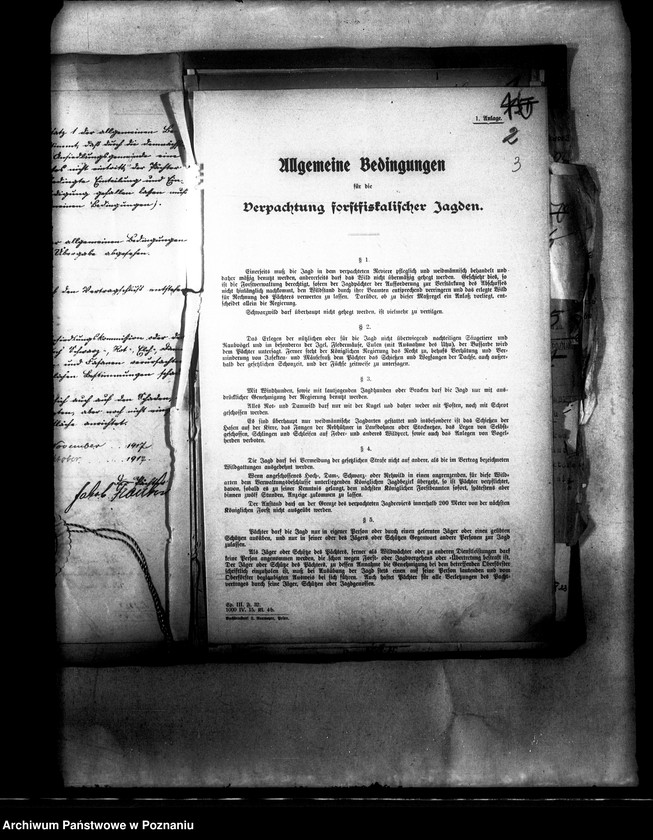 satz 1 der allgemeinen Be
stimmt, daß durch die
Ansiedlungsgemeinde eine
nicht eintritt, der Pächter
Einteilung und Ein
gefallen lassen muß
meinen Bedingungen).
r allgemeinen Bedingungen
Übergabe abgesehen.
den Vertragsschluß entstehen
siedlungskommission oder
und Fasanen
lichen Bestimmungen
sich auch auf den Schaden
aber noch nicht
November 1917
tober 1917.
Der Pächter
Jakob
1. Anlage.
2
3
Allgemeine Bedingungen
für die
Verpachtung forstfiskalischer Jagden.
§ 1.
Einerseits muß die Jagd in dem verpachteten Reviere pfleglich und weidmännisch behandelt und
daher mäßig benutzt werden, andererseits darf das Wild nicht übermäßig gehegt werden. Geschieht dies, so
ist die Forstverwaltung berechtigt, sofern der Jagdpächter der Aufforderung zur Verstärkung des Abschusses
nicht hinlänglich nachkommt, den Wildstand durch ihre Beamten entsprechend verringern und das erlegte Wild
für Rechnung des Pächters verwerten zu lassen. Darüber, ob zu dieser Maßregel ein Anlaß vorliegt, ent-
scheidet allein die Regierung.
Schwarzwild darf überhaupt nicht gehegt werden, ist vielmehr zu vertilgen.
§ 2.
Das Erlegen der nützlichen oder für die Jagd nicht überwiegend nachteiligen Säugetiere und
Raubvögel und im besonderen der Igel, Fledermäuse, Eulen (mit Ausnahme des Uhu), der Bussarde wird
dem Pächter untersagt. Ferner steht der Königlichen Regierung das Recht zu, behufs Verhütung und Ver-
minderung von Insekten- und Mäusefraß dem Pächter das Schießen und Wegfangen der Dachse, auch außer-
halb der gesetzlichen Schonzeit, und der Füchse zeitweise zu untersagen.
§ 3.
Mit Windhunden, sowie mit lautjagenden Jagdhunden oder Bracken darf die Jagd nur mit aus-
drücklicher Genehmigung der Regierung benutzt werden.
Alles Rot- und Damwild darf nur mit der Kugel und daher weder mit Posten, noch mit Schrot
geschossen werden.
Es sind überhaupt nur weidmännische Jagdarten gestattet und insbesondere ist das Schießen der
Hasen auf der Kirre, das Fangen der Rebhühner in Laufdohnen oder Stecknetzen, das Legen von Selbst-
geschossen, Schlingen und Schleifen auf Feder- und anderes Wildpret, sowie auch das Anlegen von Vogel-
herden verboten.
§ 4.
Die Jagd darf bei Vermeidung der gesetzlichen Strafe nicht auf andere, als die im Vertrag bezeichneten
Wildgattungen ausgedehnt werden.
Wenn angeschossenes Hoch-, Dam-, Schwarz- oder Rehwild in einen angrenzenden, für diese Wild-
arten dem Verwaltungsbeschlusse unterliegenden Königlichen Jagdbezirk übergeht, so ist Pächter verpflichtet,
davon, sobald es zu seiner Kenntnis gelangt, dem nächsten Königlichen Forstbeamten sofort, spätestens aber
binnen zwölf Stunden, Anzeige zukommen zu lassen.
Der Anstand darf an der Grenze des verpachteten Jagdreviers innerhalb 200 Meter von der nächsten
Königlichen Forst nicht ausgeübt werden.
§ 5.
Pächter darf die Jagd nur in eigener Person oder durch einen gelernten Jäger oder einen geübten
Schützen ausüben, und nur in seiner oder des Jägers oder Schützen Gegenwart andere Personen zur Jagd
zulassen.
Als Jäger oder Schütze des Pächters, ferner als Wildwächter oder zu anderen Dienstleistungen darf
keine Person angenommen werden, die schon wegen Forst- oder Jagdvergehens oder -Übertretung bestraft ist.
Der Jäger oder Schütze des Pächters, zu dessen Annahme die Genehmigung des betreffenden Oberförsters
schriftlich einzuholen ist, muß bei Ausübung der Jagd stets einen auf seine Person lautenden und vom
Oberförster beglaubigten Ausweis bei sich führen. Auch haftet Pächter für alle Verletzungen des Pacht-
vertrages durch seine Jäger, Schützen oder Jagdgenossen.
Archiwum Państwowe w Poznaniu